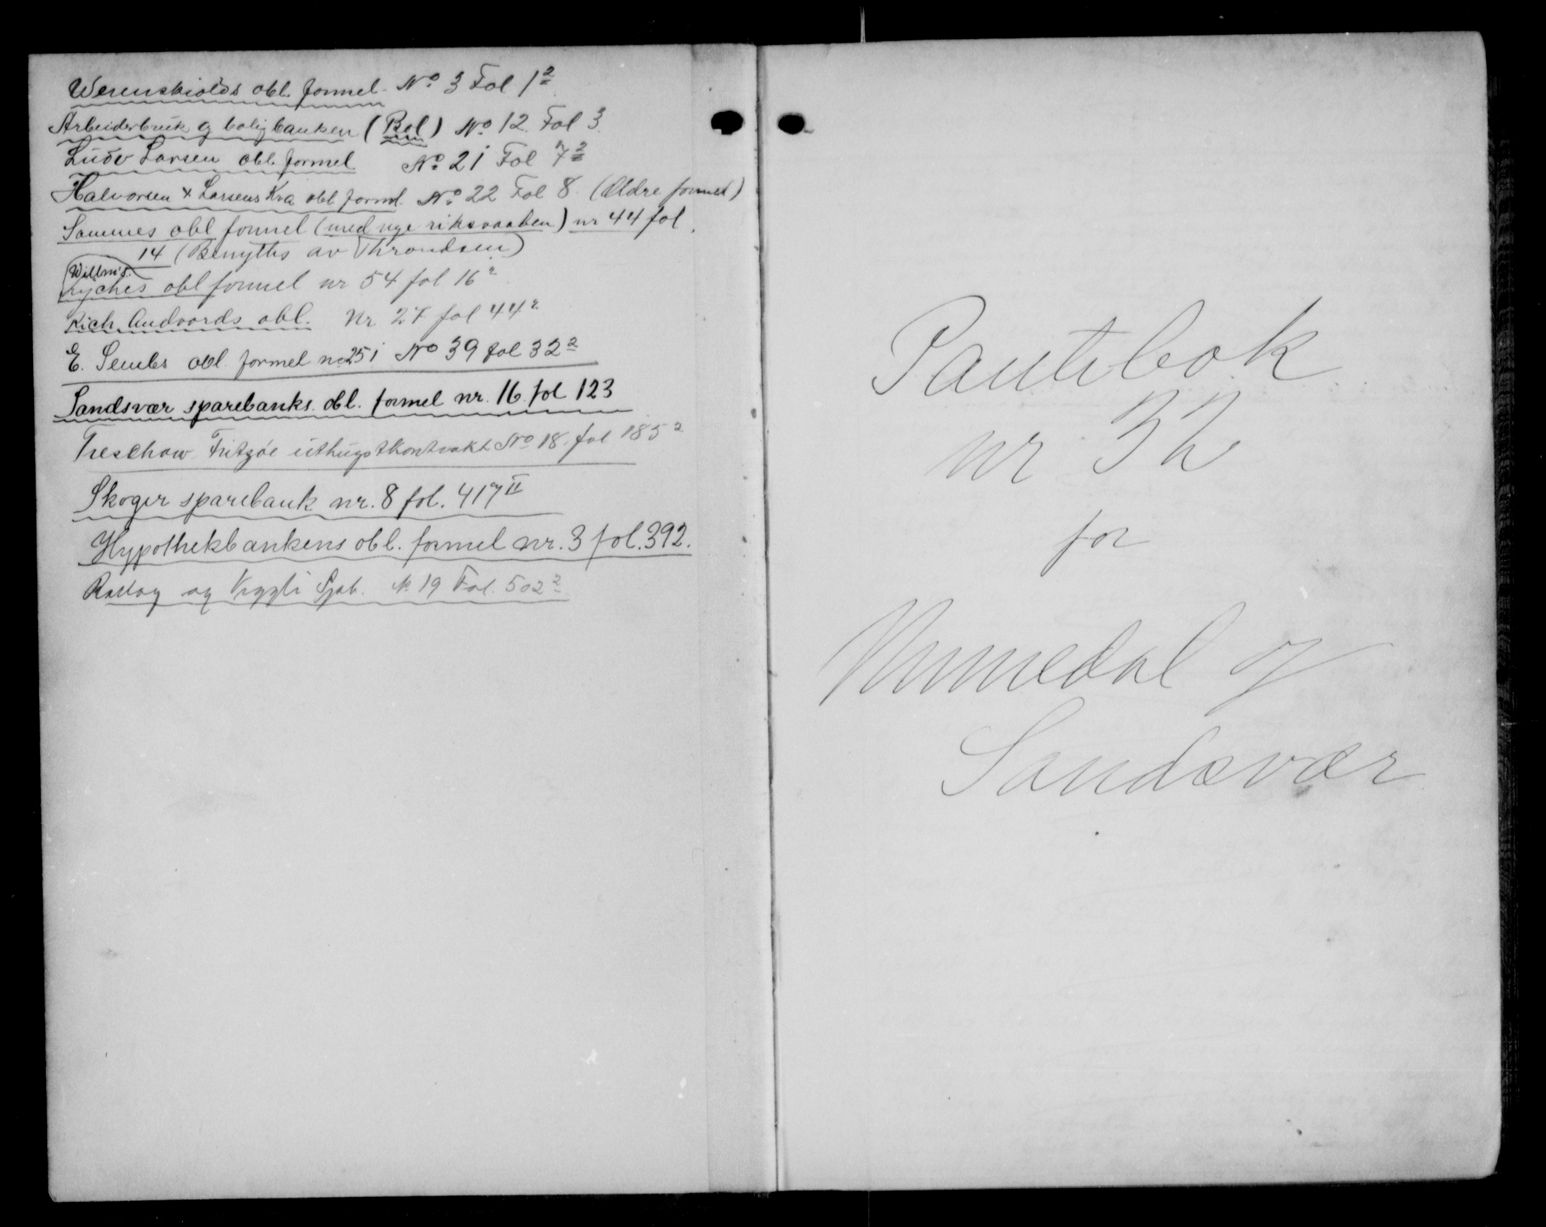 Werenskiolds obl. formel. No 3 Fol 1²
Arbeiderbruk og boligbanken (Bol) No 12. Fol 3.
Ludv Larsen obl. formel No 21 Fol 7²
Halvorsen & Larsens Kra obl formel No 22 Fol 8. (Ældre formel)
Sammes obl formel (med nye riksvaaben) nr 44 fol.
14 (Benyttes av Throndsen)
Wittm's.
Lyches obl formel nr 54 fol 16²
Rich. Andvords obl. Nr 27 fol 44²
E. Sembs obl. formel nr 251 No 39 fol 32²
Sandsvær sparebanks. obl. formel nr. 16 fol 123
Treschow Fritzøe uthugstkontrakt No 18. fol 185²
Skoger sparebank nr. 8 fol. 417 II
Hypothekbankens obl. formel nr. 3 fol. 392.
og Veggli No 19 Fol. 502²
Pantebok
nr 32
for
Numedal og
Sandsvær